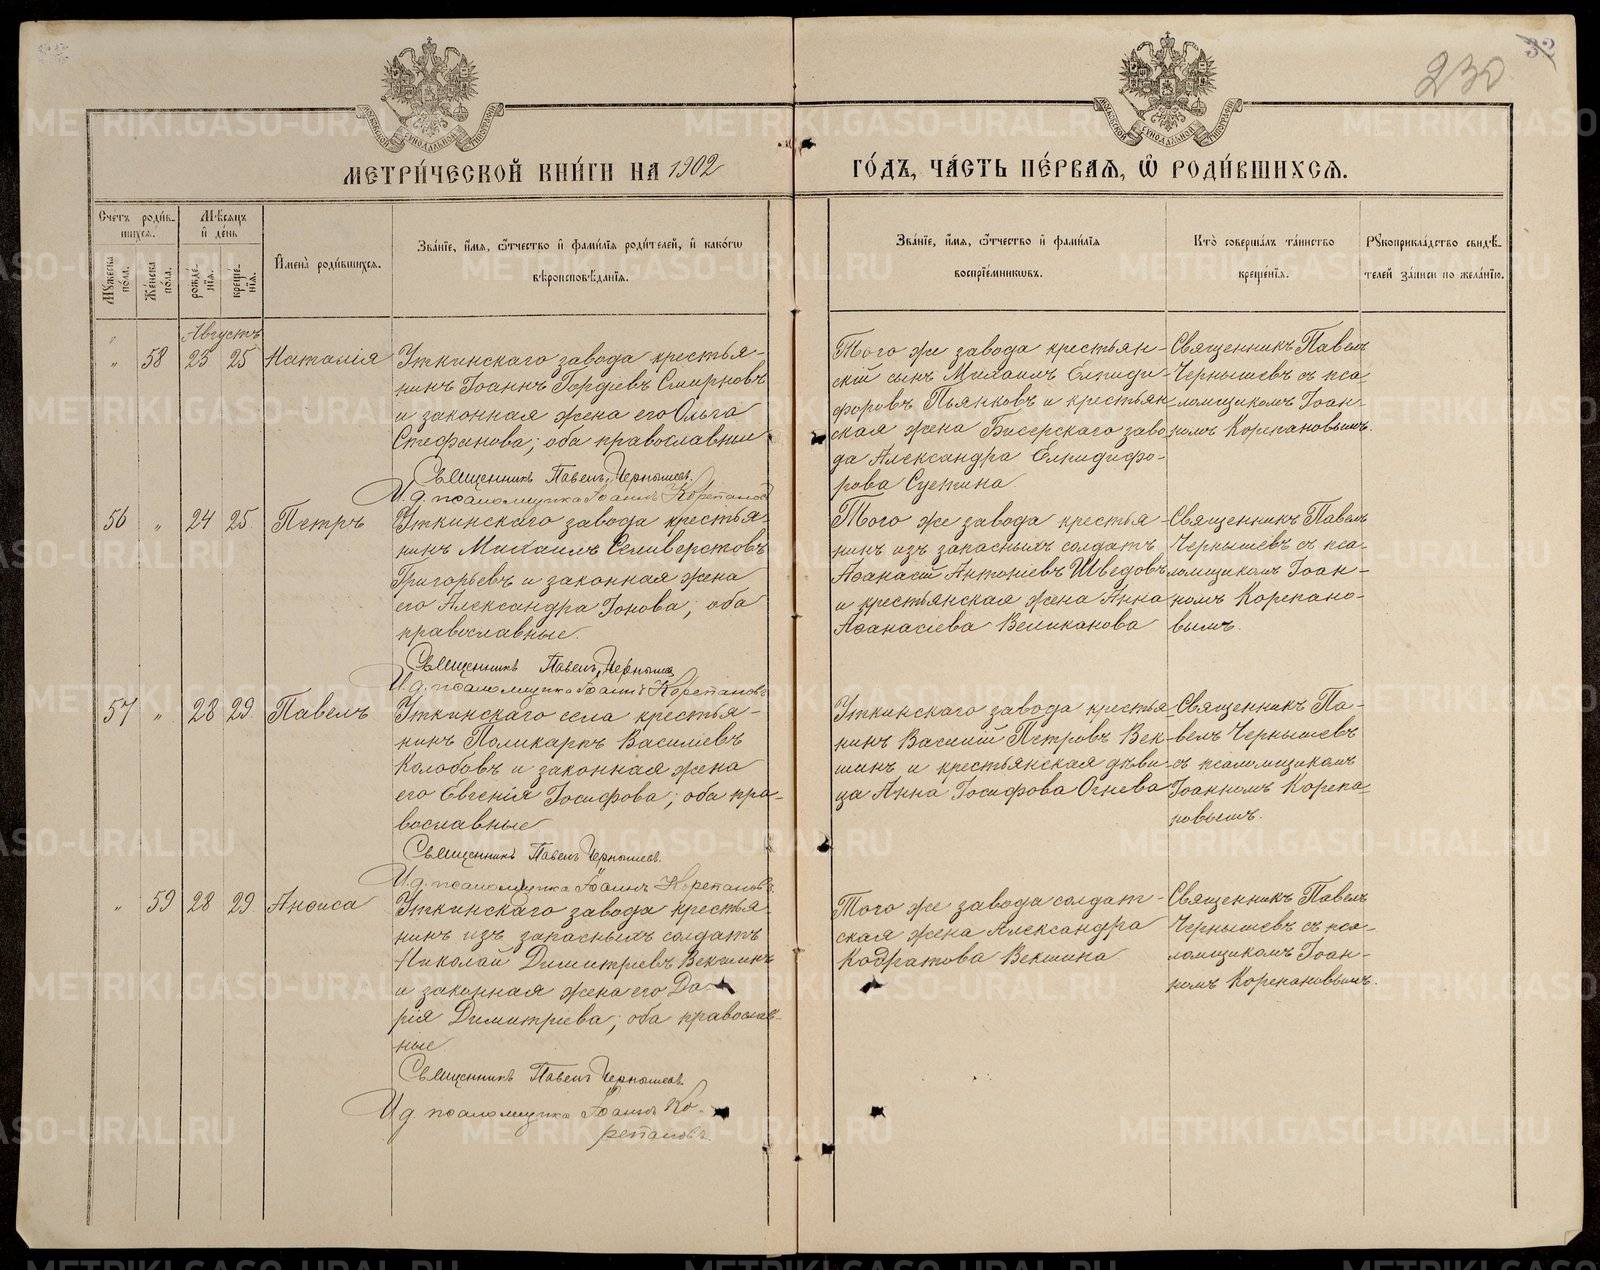 230
32
МЕТРИ́ЧЕСКОЙ КНИ́ГИ НА 1902
ГО́ДЪ, ЧА́СТЬ ПЕ́РВАЯ, Ѽ РОДИ́ВШИХСѦ.
Счетъ роди́в-
шихся.
Мꙋ́жеска по́ла.
Же́нска по́ла.
Мѣ́сяцъ
и҆ де́нь
рожде́-
нїя.
креще́-
нїя.
И҆мена̀ роди́вшихся.
Зва́нїе, и҆́мя, ѻ҆́тчество и҆ фами́лїя роди́телей, и҆ како́гѡ
вѣроисповѣ́данїя.
Зва́нїе, и҆́мя, ѻ҆́тчество и҆ фами́лїя
воспрїе́мникѡвъ.
Кто̀ соверша́лъ та́инство
креще́нїя.
Рꙋкоприкла́дство свидѣ́-
телей за́писи по жела́нїю.
Августъ
" 58 23 25 Наталія
Уткинскаго завода крестья-
нинъ Іоаннъ Гордіевъ Смирновъ
и законная жена его Ольга
Стефанова; оба православные
Священникъ Павелъ Чернышевъ.
И. д. псаломщика Іоаннъ Корепановъ
Того же завода крестьян-
скій сынъ Михаилъ Елпиди-
форовъ Пьянковъ и крестьян-
ская жена Бисерскаго заво-
да Александра Елпидифо-
рова Суетина
Священникъ Павелъ
Чернышевъ съ пса-
ломщикомъ Іоан-
номъ Корепановымъ.
56 " 24 25 Петръ
Уткинскаго завода крестья-
нинъ Михаилъ Селиверстовъ
Григорьевъ и законная жена
его Александра Іонова; оба
православные.
Священникъ Павелъ Чернышев
И. д. псаломщика Іоаннъ Корепановъ
Того же завода крестья-
нинъ изъ запасныхъ солдатъ
Аѳанасій Антоніевъ Шведовъ
и крестьянская жена Анна
Аѳанасіева Великанова
Священникъ Павелъ
Чернышевъ съ пса-
ломщикомъ Іоан-
номъ Корепано-
вымъ.
57 " 28 29 Павелъ
Уткинскаго села крестья-
нинъ Поликарпъ Василіевъ
Колобовъ и законная жена
его Евгенія Іосифова; оба пра-
вославные
Священникъ Павелъ Чернышевъ.
И. д. псаломщика Іоаннъ Корепановъ
Уткинскаго завода крестья-
нинъ Василій Петровъ Век-
шинъ и крестьянская дѣви-
ца Анна Іосифова Огнева
Священникъ Па-
велъ Чернышевъ
съ псаломщикомъ
Іоанномъ Корепа-
новымъ.
" 59 28 29 Анѳиса
Уткинскаго завода крестья-
нинъ изъ запасныхъ солдатъ
Николай Димитріевъ Векшинъ
и законная жена его Да-
рія Димитріева; оба православ-
ные
Священникъ Павелъ Чернышевъ.
И д. псаломщика Іоаннъ Ко-
репановъ.
Того же завода солдат-
ская жена Александра
Кодратова Векшина
Священникъ Павелъ
Чернышевъ съ пса-
ломщикомъ Іоан-
номъ Корепановымъ.
METRIKI.GASO-URAL.RU